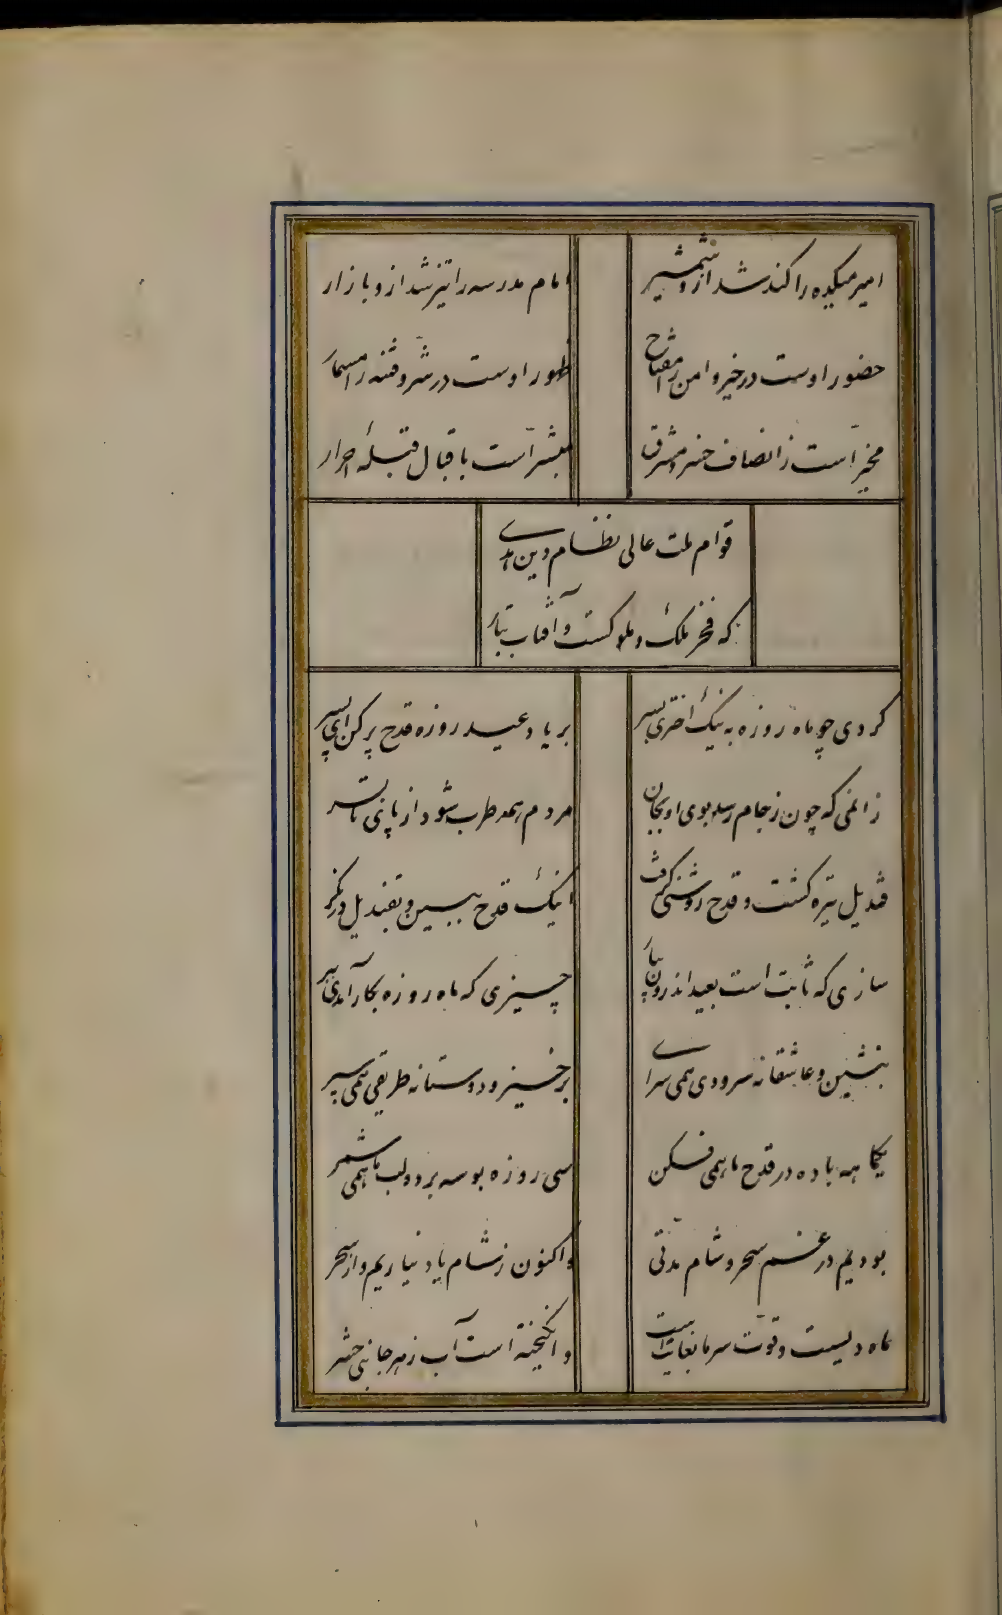 امیر میکده را کند شد ازو شمشیر
امام مدرسه را تیز شد ازو بازار
حضور اوست در خیر و امن را مفتاح
ظهور اوست در شر و فتنه را مسمار
مخبر است ز انصاف خسرو مشرق
مبشر است باقبال قبلهٔ احرار
قوام ملت عالی نظام دین هدی
که فخر ملک و ملوکست و آفتاب تبار
کردی چو ماه روزه به نیک اختری بسر
بر یاد عید روزه قدح پر کن ای پسر
زان می که چون ز جام رسد بوی او بجان
مردم همه طرب شود از پای تا بسر
قندیل تیره کشت و قدح روشنی کرفت
اینک قدح ببین و بقندیل در نکر
سازی که ثابت است بعید اندرون بیار
چیزی که ماه روزه بکار آمدی ببر
بنشین و عاشقانه سرودی همی سرای
برخیز و دوستانه طریقی همی سپر
یکماهه باده در قدح ما همی فکن
سی روزه بوسه بر دو لب ما همی شمر
بودیم در غم سحر و شام مدتی
واکنون ز شام یاد نیاریم و از سحر
ماه دیست و قوت سرما بغایت است
وانکیخته است آب ز هر جانبی حشر